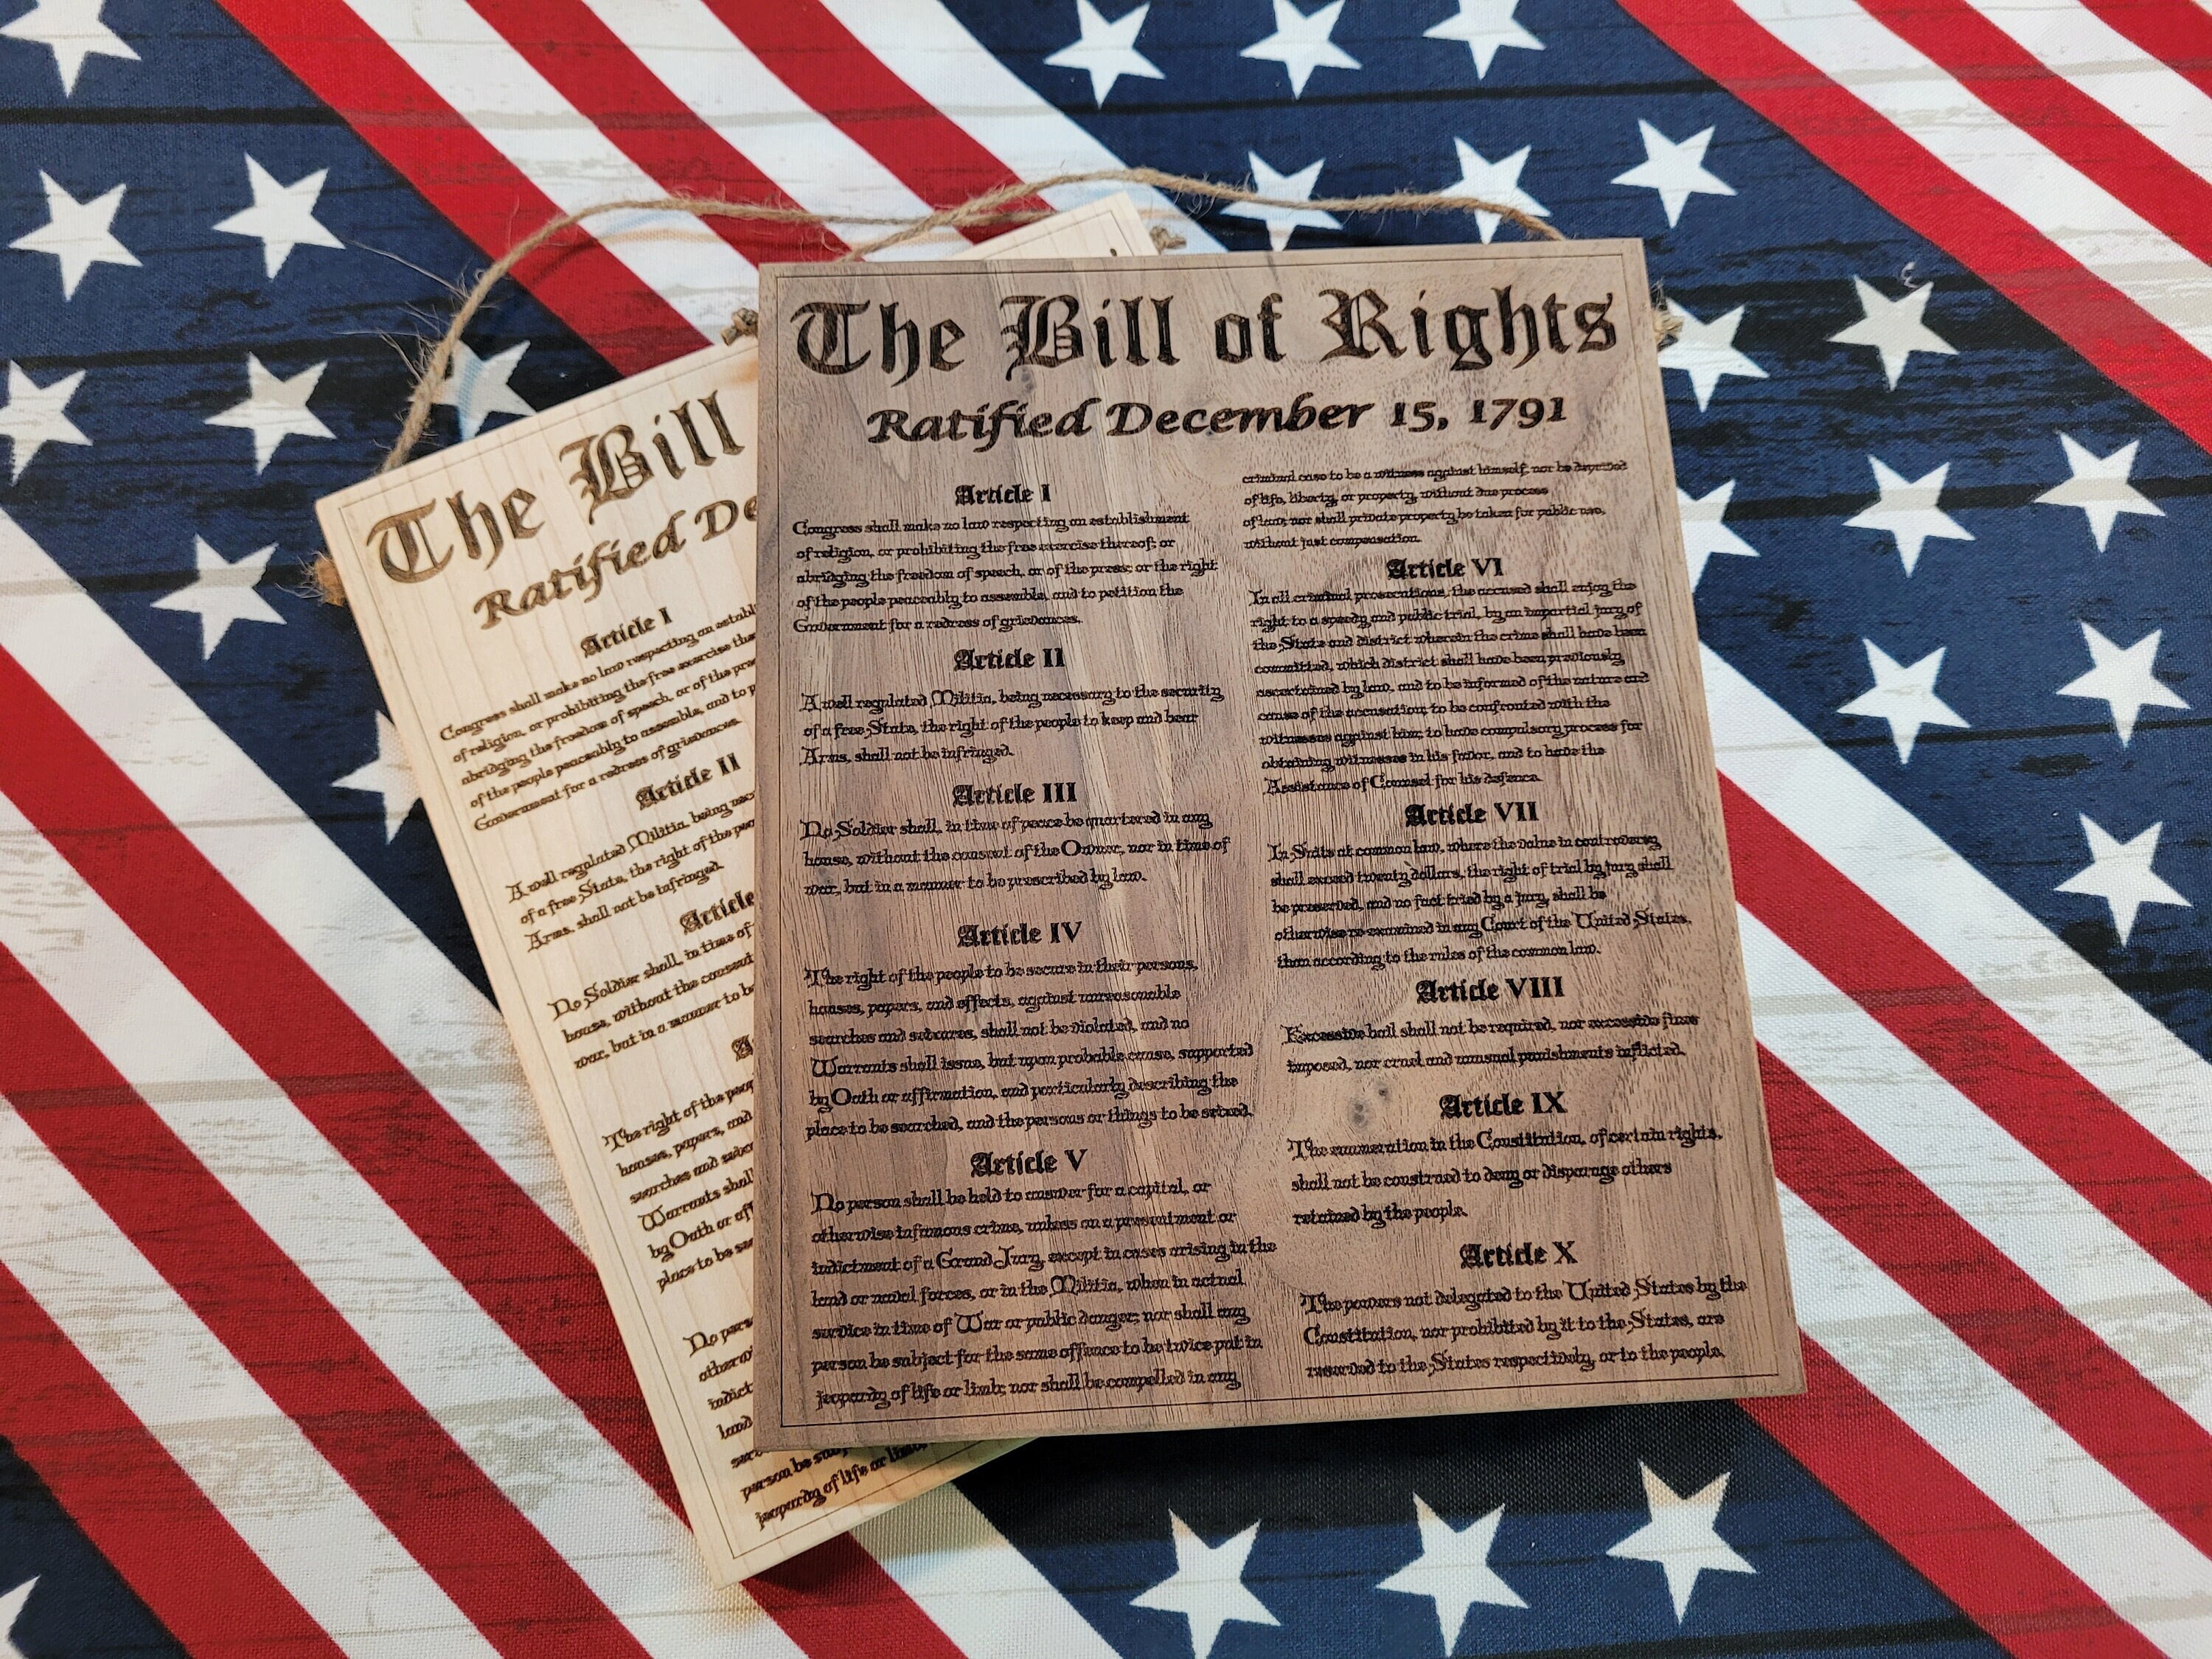 The Bill of Rights
Ratified December 15, 1791
Article I
Congress shall make no law respecting an establishment
of religion, or prohibiting the free exercise thereof; or
abridging the freedom of speech, or of the press; or the right
of the people peaceably to assemble, and to petition the
Government for a redress of grievances.
Article II
A well regulated Militia, being necessary to the security
of a free State, the right of the people to keep and bear
Arms, shall not be infringed.
Article III
No Soldier shall, in time of peace be quartered in any
house, without the consent of the Owner, nor in time of
war, but in a manner to be prescribed by law.
Article IV
The right of the people to be secure in their persons,
houses, papers, and effects, against unreasonable
searches and seizures, shall not be violated, and no
Warrants shall issue, but upon probable cause, supported
by Oath or affirmation, and particularly describing the
place to be searched, and the persons or things to be seized.
Article V
No person shall be held to answer for a capital, or
otherwise infamous crime, unless on a presentment or
indictment of a Grand Jury, except in cases arising in the
land or naval forces, or in the Militia, when in actual
service in time of War or public danger; nor shall any
person be subject for the same offence to be twice put in
jeopardy of life or limb; nor shall be compelled in any
criminal case to be a witness against himself, nor be deprived
of life, liberty, or property, without due process
of law; nor shall private property be taken for public use,
without just compensation.
Article VI
In all criminal prosecutions, the accused shall enjoy the
right to a speedy and public trial, by an impartial jury of
the State and district wherein the crime shall have been
committed, which district shall have been previously
ascertained by law, and to be informed of the nature and
cause of the accusation; to be confronted with the
witnesses against him; to have compulsory process for
obtaining witnesses in his favor, and to have the
Assistance of Counsel for his defence.
Article VII
In Suits at common law, where the value in controversy
shall exceed twenty dollars, the right of trial by jury shall
be preserved, and no fact tried by a jury, shall be
otherwise re-examined in any Court of the United States,
than according to the rules of the common law.
Article VIII
Excessive bail shall not be required, nor excessive fines
imposed, nor cruel and unusual punishments inflicted.
Article IX
The enumeration in the Constitution, of certain rights,
shall not be construed to deny or disparage others
retained by the people.
Article X
The powers not delegated to the United States by the
Constitution, nor prohibited by it to the States, are
reserved to the States respectively, or to the people.
The Bill
Ratified De
Article I
Congress shall make no law respecting an establ
of religion, or prohibiting the free exercise the
abridging the freedom of speech, or of the pre
of the people peaceably to assemble, and to p
Government for a redress of grievances.
Article II
A well regulated Militia, being nec
of a free State, the right of the peo
Arms, shall not be infringed.
Article
No Soldier shall, in time of
house, without the consent
war, but in a manner to be
A
The right of the peop
houses, papers, and
searches and seiz
Warrants shall
by Oath or aff
place to be sea
No pers
otherwi
indict
land
serv
person be subj
jeopardy of life or limb